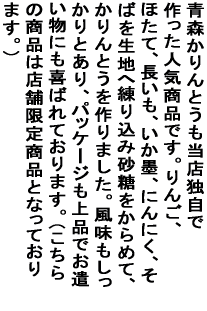 青森かりんとうも当店独自で
作った人気商品です。りんご、
ほたて、長いも、いか墨、にんにく、そ
ばを生地へ練り込み砂糖をからめて、
かりんとうを作りました。風味もしっ
かりとあり、パッケージも上品でお遣
い物にも喜ばれております。（こちら
の商品は店舗限定商品となっており
ます。）